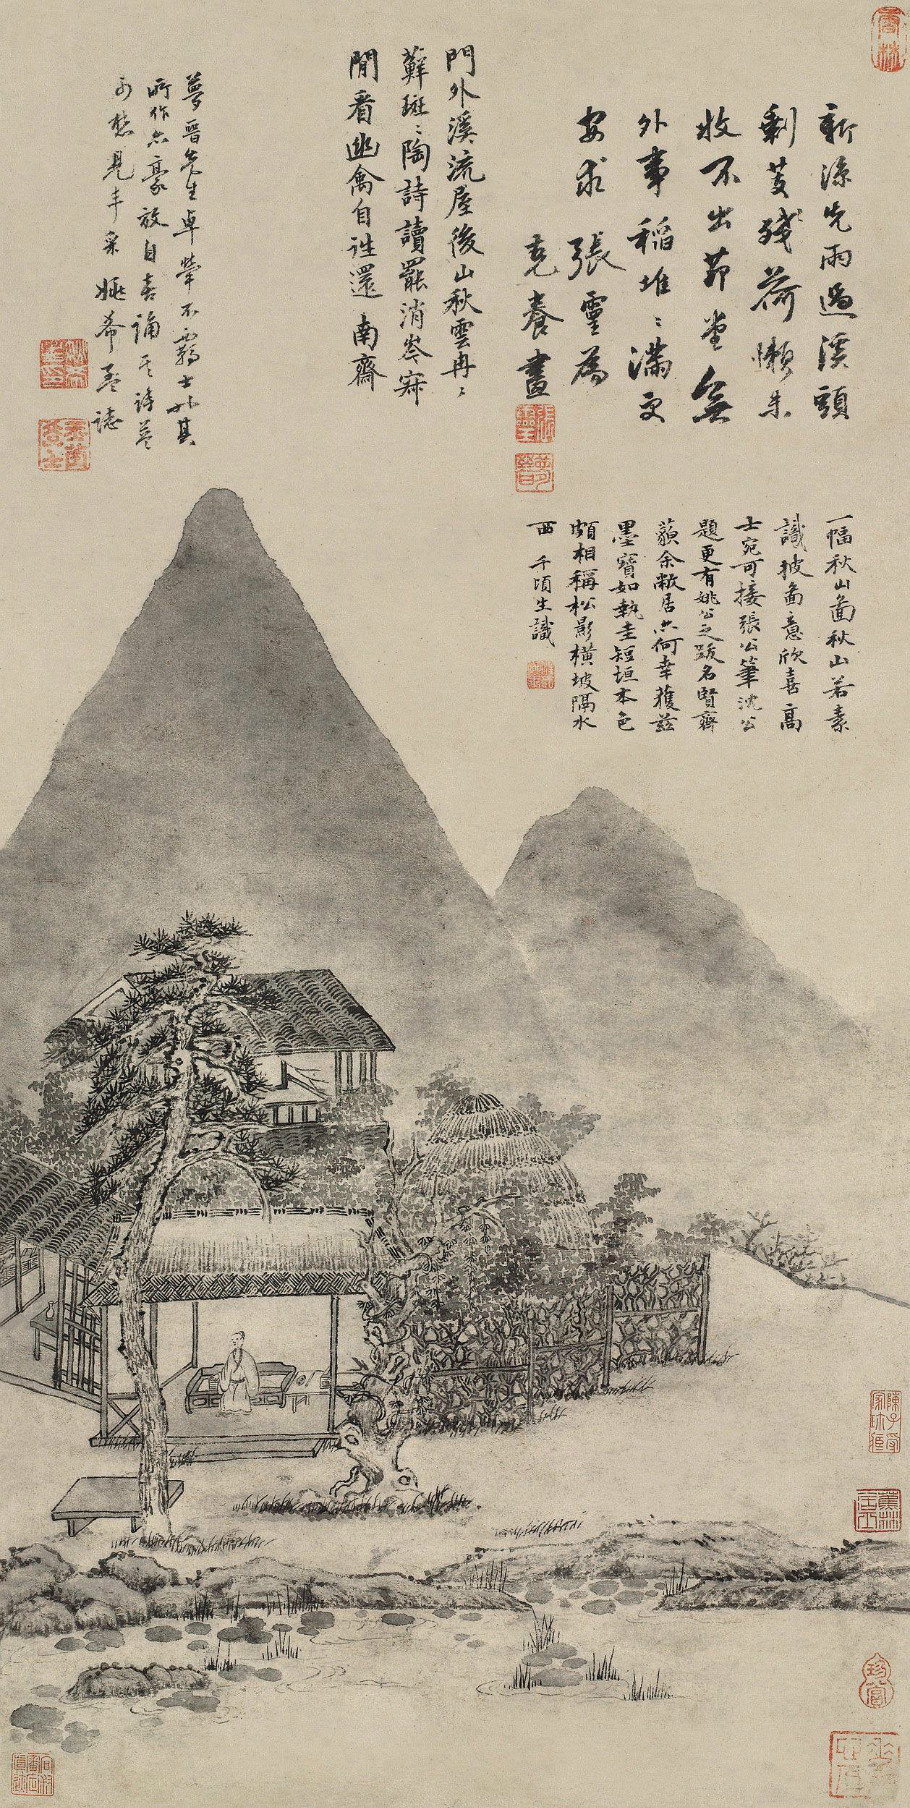 新涼先雨過溪頭
剩芰殘荷懶未
收不出茆堂無
外事稻堆〻滿更
安求 張靈為
堯養畫
門外溪流屋後山秋雲冉〻
蘚斑〻陶詩讀罷消岑寂
閒看幽禽自往還 南齋
夢晉先生卓犖不羈士也其
所作亦豪放自喜誦其詩益
可想見丰采 姚希孟誌
一幅秋山圖秋山若素
識披圖意欣喜高
士宛可接張公筆沈公
題更有姚公之跋名賢齊
蘋余敝居亦何幸獲茲
墨寶如執圭短垣本色
頗相稱松影橫坡隔水
西 千頃生識